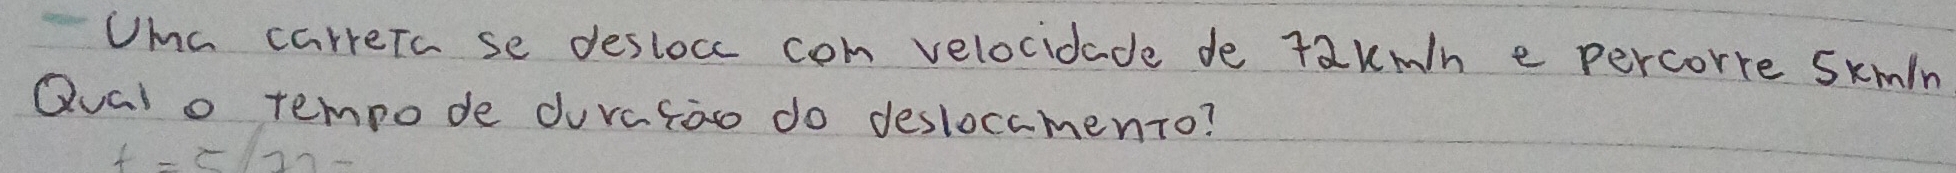 - Uma carreta se desloca com velocidade de 72km/h e percorre 5km/h
Qual o tempo de duração do deslocamento?